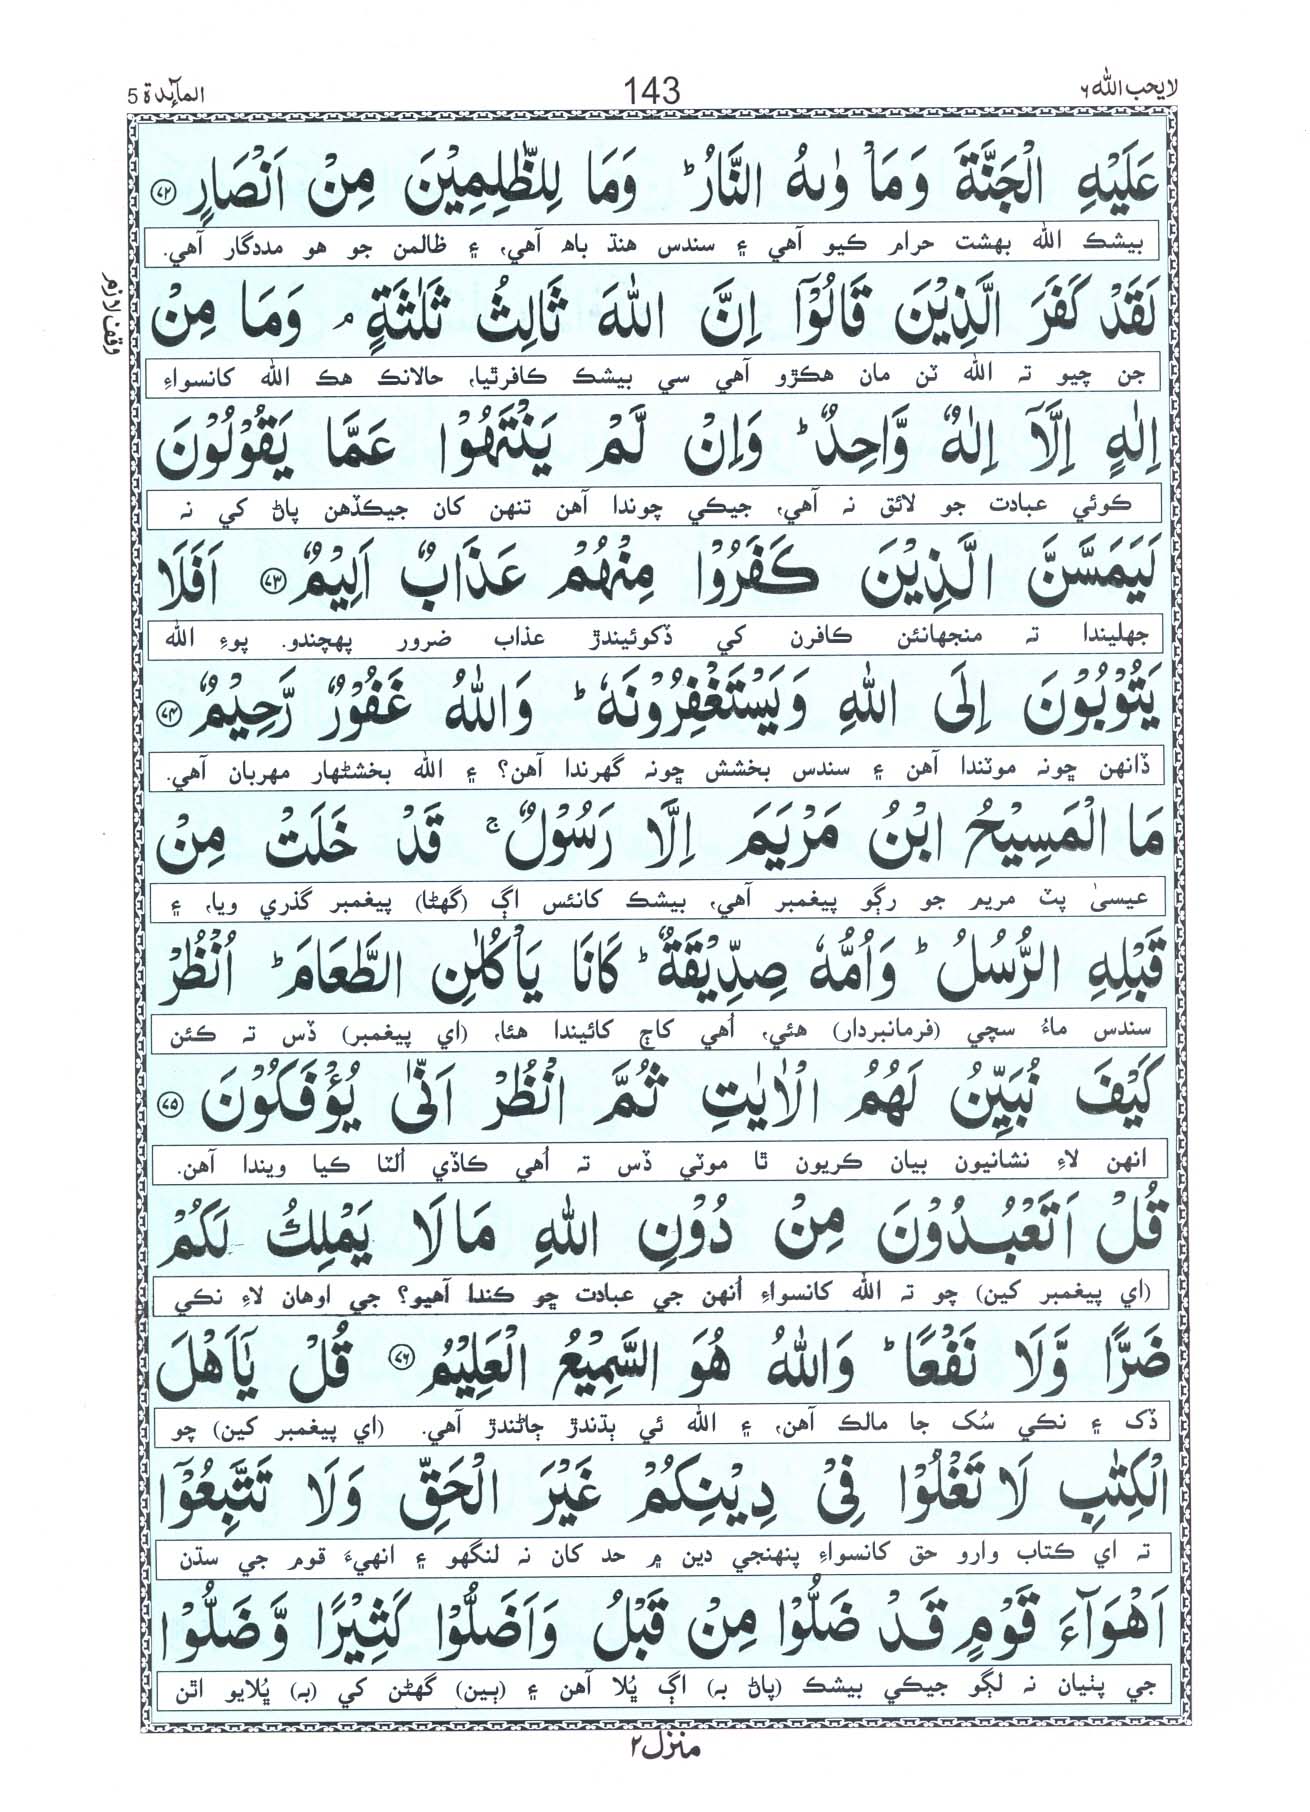 لا يحب الله ٦
143
المآئدة 5
عَلَيْهِ الْجَنَّةَ وَمَاْوٰىهُ النَّارُ ؕ وَمَا لِلظّٰلِمِيْنَ مِنْ اَنْصَارٍ ﴿۷۲﴾
بيشڪ الله بهشت حرام ڪيو آهي ۽ سندس هنڌ باھ آهي، ۽ ظالمن جو ھو مددگار آهي.
وقف لازم
لَقَدْ كَفَرَ الَّذِيْنَ قَالُوْۤا اِنَّ اللّٰهَ ثَالِثُ ثَلٰثَةٍ ۘ وَمَا مِنْ
جن چيو ته الله ٽن مان هڪڙو آهي سي بيشڪ ڪافرٿيا، حالانڪ هڪ الله کانسواءِ
اِلٰهٍ اِلَّاۤ اِلٰهٌ وَّاحِدٌ ؕ وَاِنْ لَّمْ يَنْتَهُوْا عَمَّا يَقُوْلُوْنَ
ڪوئي عبادت جو لائق نہ آهي، جيڪي چوندا آهن تنهن کان جيڪڏهن پاڻ کي نہ
لَيَمَسَّنَّ الَّذِيْنَ كَفَرُوْا مِنْهُمْ عَذَابٌ اَلِيْمٌ ﴿۷۳﴾ اَفَلَا
جهليندا ته منجهانئن ڪافرن کي ڏکوئيندڙ عذاب ضرور پهچندو. پوءِ الله
يَتُوْبُوْنَ اِلَى اللّٰهِ وَيَسْتَغْفِرُوْنَهٗ ؕ وَاللّٰهُ غَفُوْرٌ رَّحِيْمٌ ﴿۷۴﴾
ڏانهن ڇونہ موٽندا آهن ۽ سندس بخشش ڇونہ گهرندا آهن؟ ۽ الله بخشڻهار مهربان آهي.
مَا الْمَسِيْحُ ابْنُ مَرْيَمَ اِلَّا رَسُوْلٌ ۚ قَدْ خَلَتْ مِنْ
عيسىٰ پٽ مريم جو رڳو پيغمبر آهي، بيشڪ کانئس اڳ (گهڻا) پيغمبر گذري ويا، ۽
قَبْلِهِ الرُّسُلُ ؕ وَاُمُّهٗ صِدِّيْقَةٌ ؕ كَانَا يَاْكُلٰنِ الطَّعَامَ ؕ اُنْظُرْ
سندس ماءُ سچي (فرمانبردار) هئي، اُهي کاڄ کائيندا هئا، (اي پيغمبر) ڏس ته ڪئن
كَيْفَ نُبَيِّنُ لَهُمُ الْاٰيٰتِ ثُمَّ انْظُرْ اَنّٰى يُؤْفَكُوْنَ ﴿۷۵﴾
انهن لاءِ نشانيون بيان ڪريون ٿا موٽي ڏس ته اُهي ڪاڏي اُلٽا ڪيا ويندا آهن.
قُلْ اَتَعْبُدُوْنَ مِنْ دُوْنِ اللّٰهِ مَا لَا يَمْلِكُ لَكُمْ
(اي پيغمبر کين) چو ته الله کانسواءِ اُنهن جي عبادت ڇو ڪندا آهيو؟ جي اوهان لاءِ نڪي
ضَرًّا وَّلَا نَفْعًا ؕ وَاللّٰهُ هُوَ السَّمِيْعُ الْعَلِيْمُ ﴿۷۶﴾ قُلْ يٰۤاَهْلَ
ڏک ۽ نڪي سُک جا مالڪ آهن، ۽ الله ئي ٻڌندڙ ڄاڻندڙ آهي. (اي پيغمبر کين) چو
الْكِتٰبِ لَا تَغْلُوْا فِيْ دِيْنِكُمْ غَيْرَ الْحَقِّ وَلَا تَتَّبِعُوْۤا
ته اي ڪتاب وارو حق کانسواءِ پنهنجي دين ۾ حد کان نہ لنگهو ۽ انهيءَ قوم جي سڌن
اَهْوَآءَ قَوْمٍ قَدْ ضَلُّوْا مِنْ قَبْلُ وَاَضَلُّوْا كَثِيْرًا وَّضَلُّوْا
جي پٺيان نہ لڳو جيڪي بيشڪ (پاڻ بہ) اڳ ڀُلا آهن ۽ (ٻين) گهڻن کي (بہ) ڀُلايو اٿن
منزل ۲